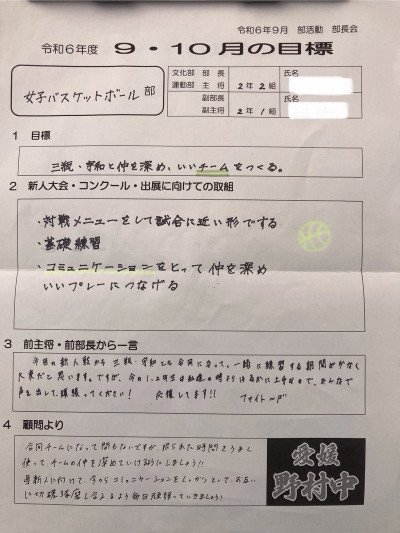 令和6年9月 部活動 部長会
令和6年度 9・10月の目標
女子バスケットボール部
文化部 部 長
運動部 主 将
2年2組
氏名
副部長
副主将
2年1組
氏名
1 目標
三瓶・宇和と仲を深め、いいチームをつくる。
2 新人大会・コンクール・出展に向けての取組
・対戦メニューをして試合に近い形でする
・基礎練習
・コミュニケーションをとって仲を深め
いいプレーにつなげる
3 前主将・前部長から一言
今回の新人戦から三瓶・宇和とも合同になって、一緒に練習する期間が少なく
大変だと思います。ですが、今の1、2年生は
時よりはるかに上手なので、みんなで
声を出して、頑張ってください! 応援してます!! ファイトーッ
4 顧問より
合同チームになって間もないですが、限られた時間をうまく
使って、チームの仲を深めていけるようにしましょう!!
新人に向けて、今からコミュニケーションをしっかりとって、お互い
に切磋琢磨し合えるよう毎日頑張っていきましょう!
愛媛
野村中